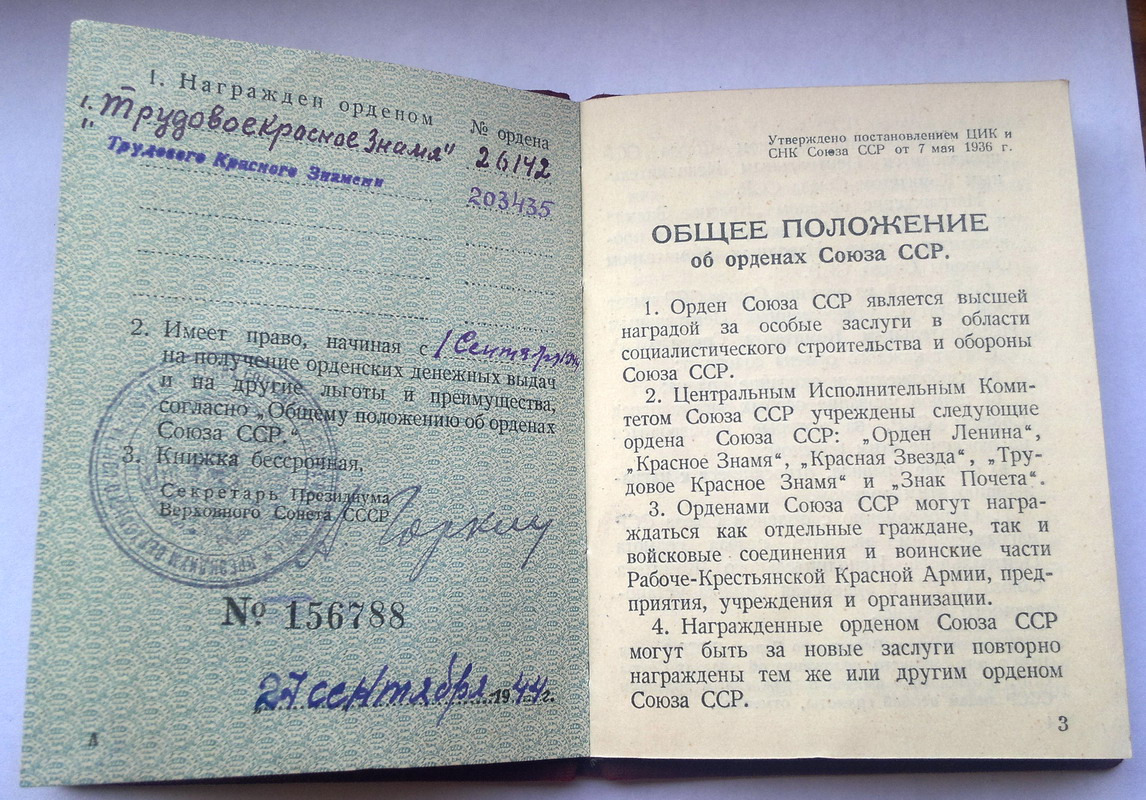 1. Награжден орденом
№ ордена
1. "Трудовое красное Знамя" 26142
" Трудового Красного Знамени 203435
2. Имеет право, начиная с 1 Сентября
на получение орденских денежных выдач
и на другие льготы и преимущества,
согласно „Общему положению об орденах
Союза ССР.“
3. Книжка бессрочная.
Секретарь Президиума
Верховного Совета СССР
А Горкин
№ 156788
27 сентября 1944 г.
А
Утверждено постановлением ЦИК и
СНК Союза ССР от 7 мая 1936 г.
ОБЩЕЕ ПОЛОЖЕНИЕ
об орденах Союза ССР.
1. Орден Союза ССР является высшей
наградой за особые заслуги в области
социалистического строительства и обороны
Союза ССР.
2. Центральным Исполнительным Коми-
тетом Союза ССР учреждены следующие
ордена Союза ССР: „Орден Ленина“,
„Красное Знамя“, „Красная Звезда“, „Тру-
довое Красное Знамя“ и „Знак Почета“.
3. Орденами Союза ССР могут награ-
ждаться как отдельные граждане, так и
войсковые соединения и воинские части
Рабоче-Крестьянской Красной Армии, пред-
приятия, учреждения и организации.
4. Награжденные орденом Союза ССР
могут быть за новые заслуги повторно
награждены тем же или другим орденом
Союза ССР.
3